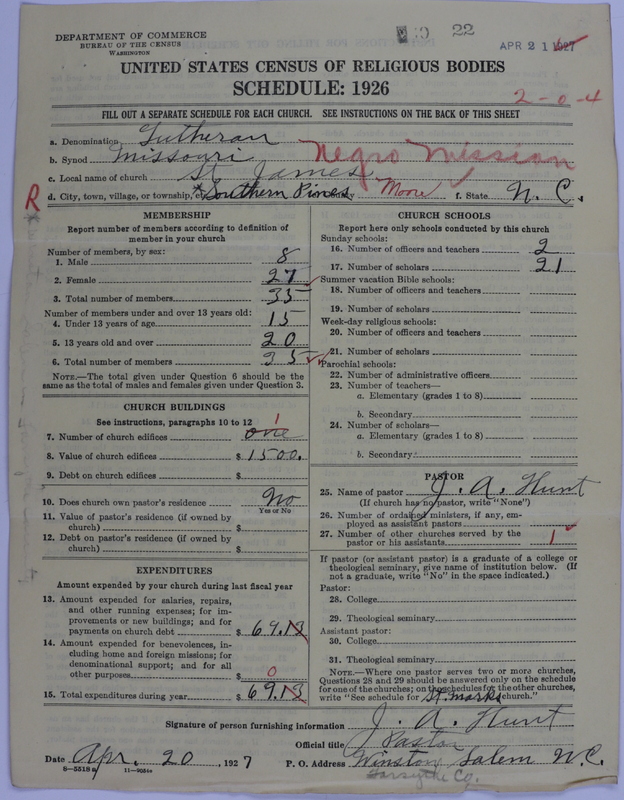 22
DEPARTMENT OF COMMERCE
BUREAU OF THE CENSUS
WASHINGTON
APR 21 1927
UNITED STATES CENSUS OF RELIGIOUS BODIES
SCHEDULE: 1926
2-0-4
FILL OUT A SEPARATE SCHEDULE FOR EACH CHURCH. SEE INSTRUCTIONS ON THE BACK OF THIS SHEET
a. Denomination Lutheran
b. Synod Missouri Negro Mission
c. Local name of church St. James
R d. City, town, village, or township, Southern Pines Moore f. State N. C.
MEMBERSHIP
Report number of members according to definition of
member in your church
Number of members, by sex:
1. Male 8
2. Female 27
3. Total number of members 35
Number of members under and over 13 years old:
4. Under 13 years of age 15
5. 13 years old and over 20
6. Total number of members 35
NOTE.—The total given under Question 6 should be the
same as the total of males and females given under Question 3.
CHURCH BUILDINGS
See instructions, paragraphs 10 to 12
7. Number of church edifices one 1
8. Value of church edifices $ 1500.
9. Debt on church edifices $
10. Does church own pastor's residence No
Yes or No
11. Value of pastor's residence (if owned by
church) $
12. Debt on pastor's residence (if owned by
church) $
EXPENDITURES
Amount expended by your church during last fiscal year
13. Amount expended for salaries, repairs,
and other running expenses; for im-
provements or new buildings; and for
payments on church debt $ 69.13
14. Amount expended for benevolences, in-
cluding home and foreign missions; for
denominational support; and for all
other purposes $ 0
15. Total expenditures during year $ 69.13
CHURCH SCHOOLS
Report here only schools conducted by this church
Sunday schools:
16. Number of officers and teachers 2
17. Number of scholars 21
Summer vacation Bible schools:
18. Number of officers and teachers
19. Number of scholars
Week-day religious schools:
20. Number of officers and teachers
21. Number of scholars
Parochial schools:
22. Number of administrative officers
23. Number of teachers—
a. Elementary (grades 1 to 8)
b. Secondary
24. Number of scholars—
a. Elementary (grades 1 to 8)
b. Secondary
PASTOR
25. Name of pastor J. A. Hunt
(If church has no pastor, write "None")
26. Number of ordained ministers, if any, em-
ployed as assistant pastors
27. Number of other churches served by the
pastor or his assistants 1
If pastor (or assistant pastor) is a graduate of a college or
theological seminary, give name of institution below. (If
not a graduate, write "No" in the space indicated.)
Pastor:
28. College
29. Theological seminary
Assistant pastor:
30. College
31. Theological seminary
NOTE.—Where one pastor serves two or more churches,
Questions 28 and 29 should be answered only on the schedule
for one of the churches; on the schedules for the other churches,
write "See schedule for St. Marks church."
Signature of person furnishing information J. A. Hunt
Official title Pastor
Date Apr. 20, 1927 P. O. Address Winston Salem N.C.
Forsythe Co.
8—5518a 11—9054